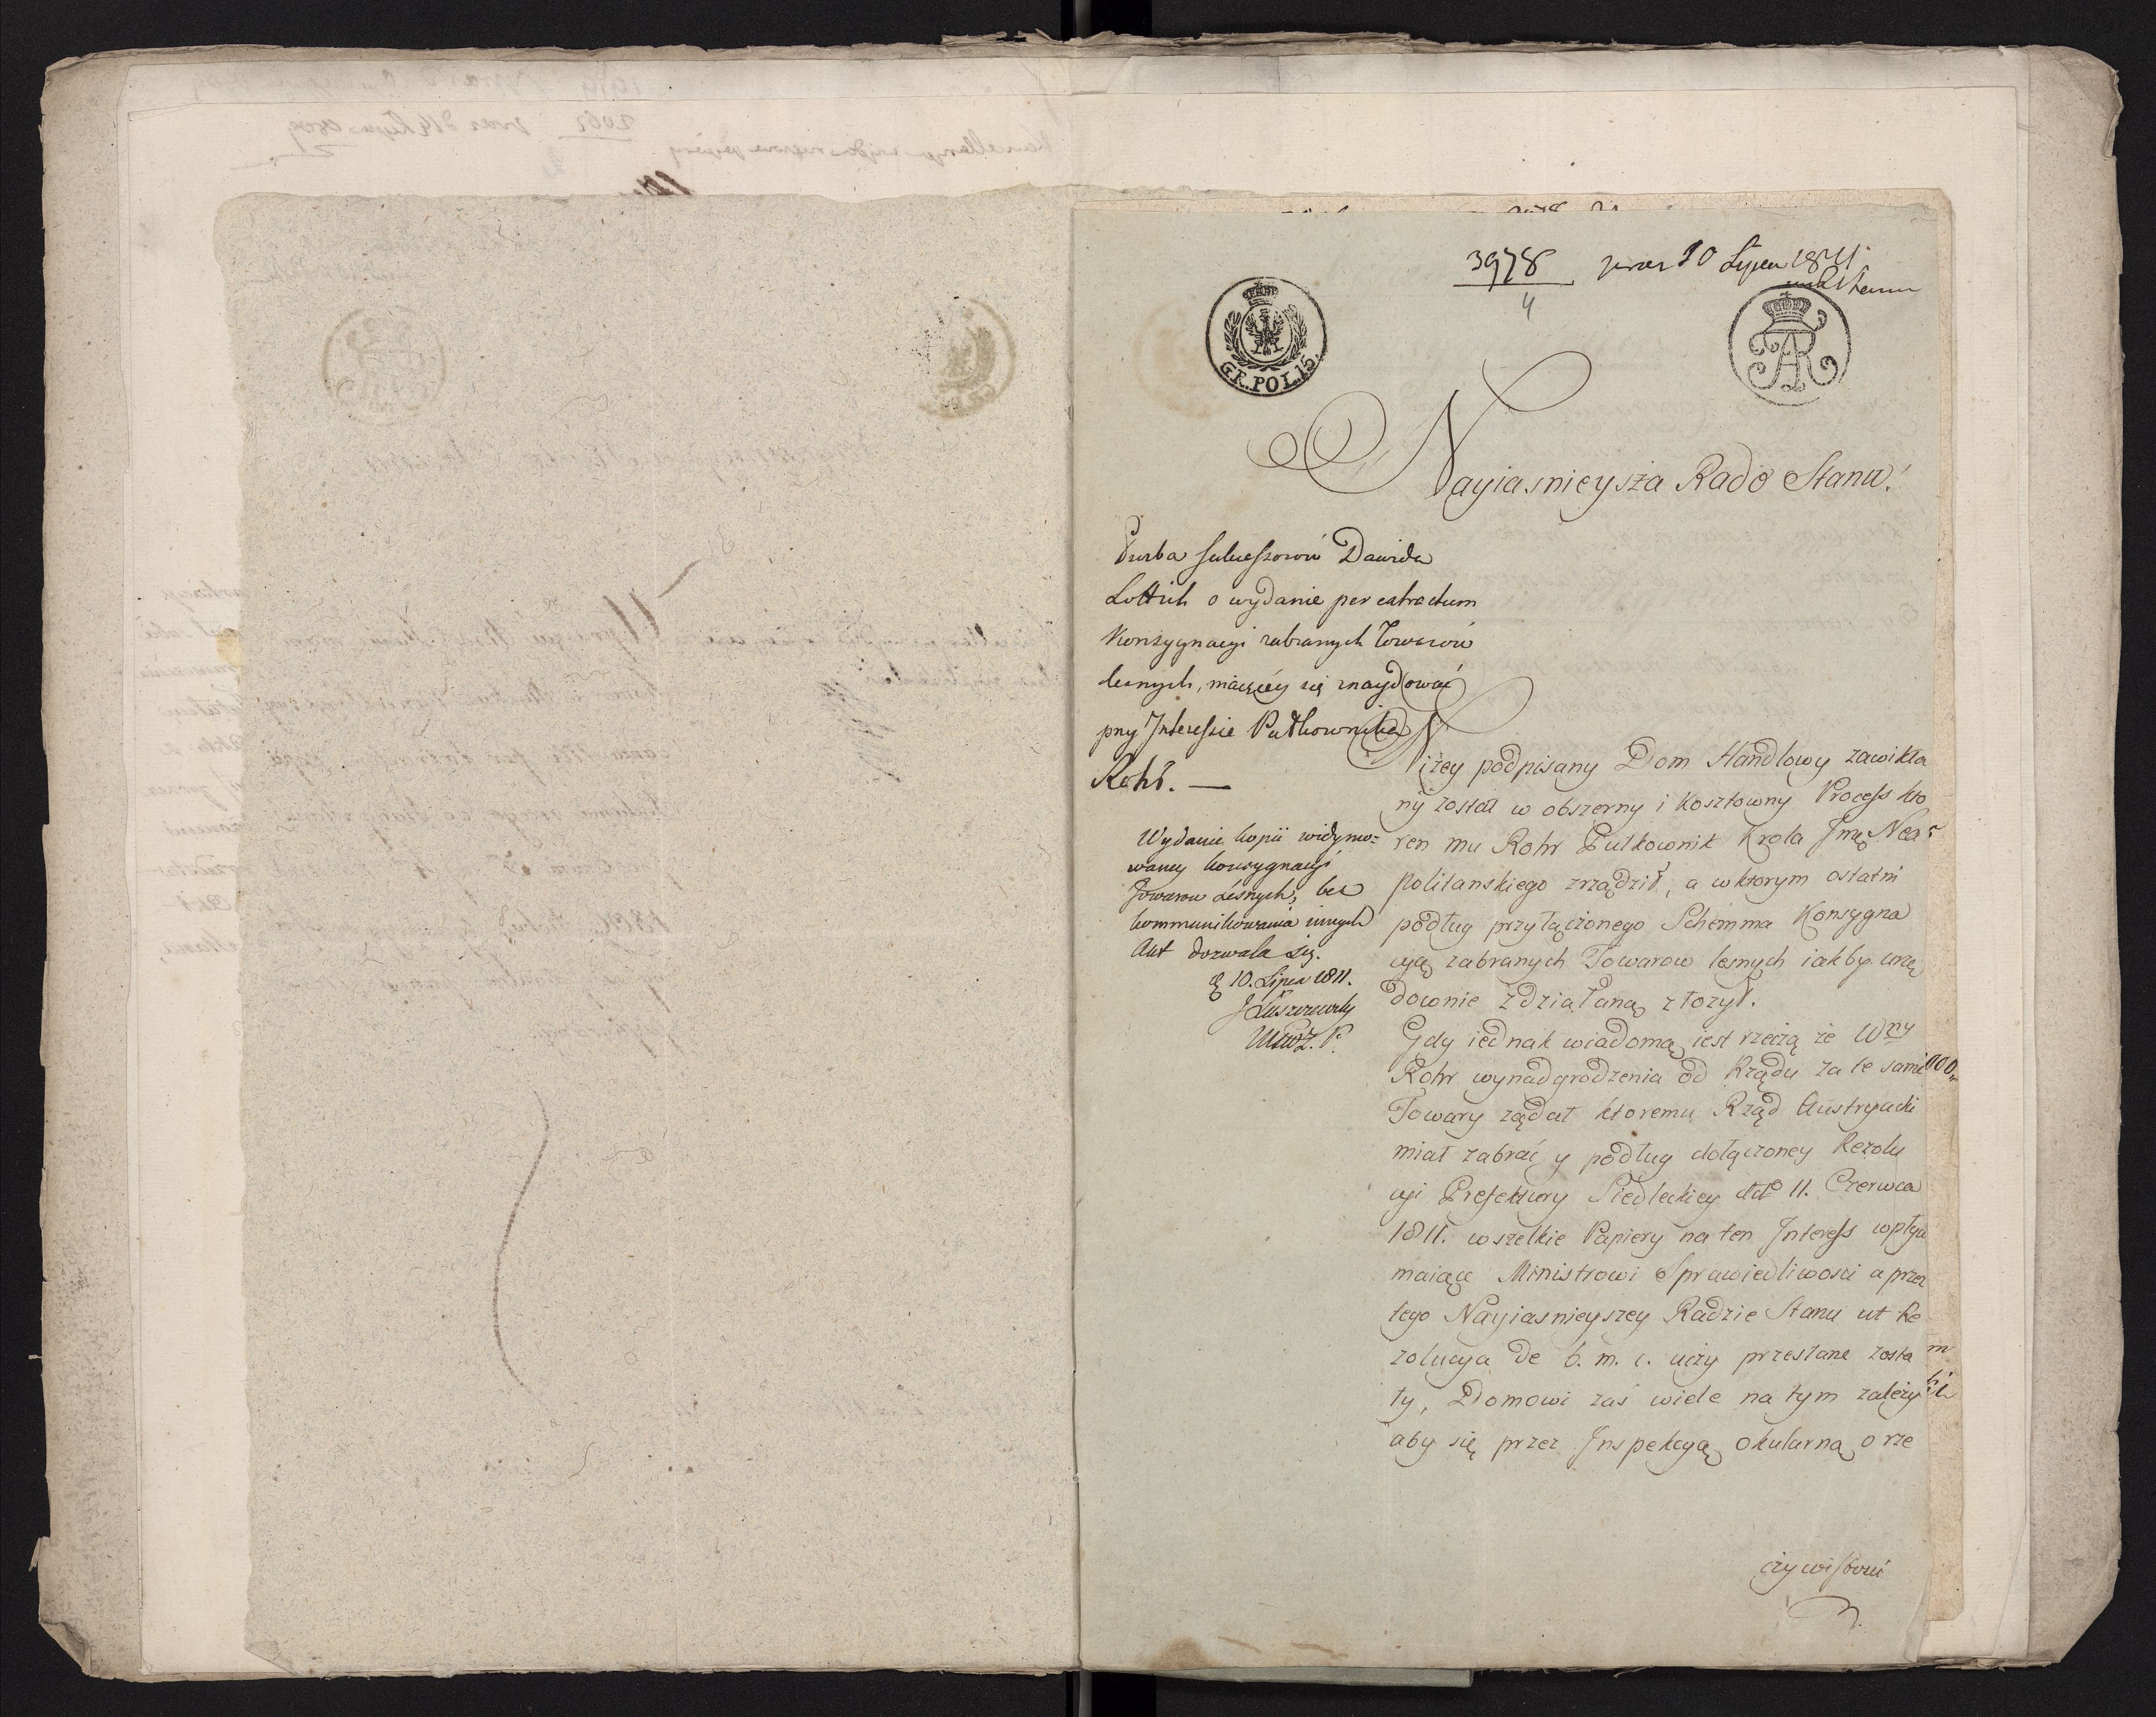 3978 praes 10 Lipca 1811
4
GR. POL. 15.
FAR
Nayiasnieysza Rado Stanu!
Proźba sukcessorów Dawida
Lottich o wydanie per extractum
Konsygnacyi zabranych Towarów
leśnych, maiącéy się znaydować
przy Interessie Pułkownika
Rohr. —
Wydanie kopii widymo=
waney konsygnacyi
Towarow Leśnych, bez
kommunikowania innych
Akt dozwala się.
d 10. Lipca 1811.
J Łuszczewsky
Niżey podpisany Dom Handlowy zawikła
ny został w obszerny i kosztowny Process kto
ren mu Rohr Pułkownik Krola Jmę Nea
politanskiego zrządził, a w ktorym ostatni
podług przyłączonego Schemma Konsygna
cyą zabranych Towarow lesnych iakby urzę
downie zdziałaną złozył.
Gdy iednak wiadomą iest rzeczą że Wny
Rohr wynadgrodzenia od Rządu za te same
Towary ządał ktoremu Rząd Austryacki
miał zabrać y podług dołączoney Rezolu
cyi Prefektury Siedleckiey dtto 11. Czerwca
1811. wszelkie Papiery na ten Interess wpływ
maiące Ministrowi Sprawiedliwosci a przez
tego Nayiasnieyszey Radzie Stanu ut Re
zolucya de 6. m. c. uczy przesłane zosta
ły, Domowi zaś wiele na tym zależy
aby się przez Inspekcyą okularną o rze
czywistości